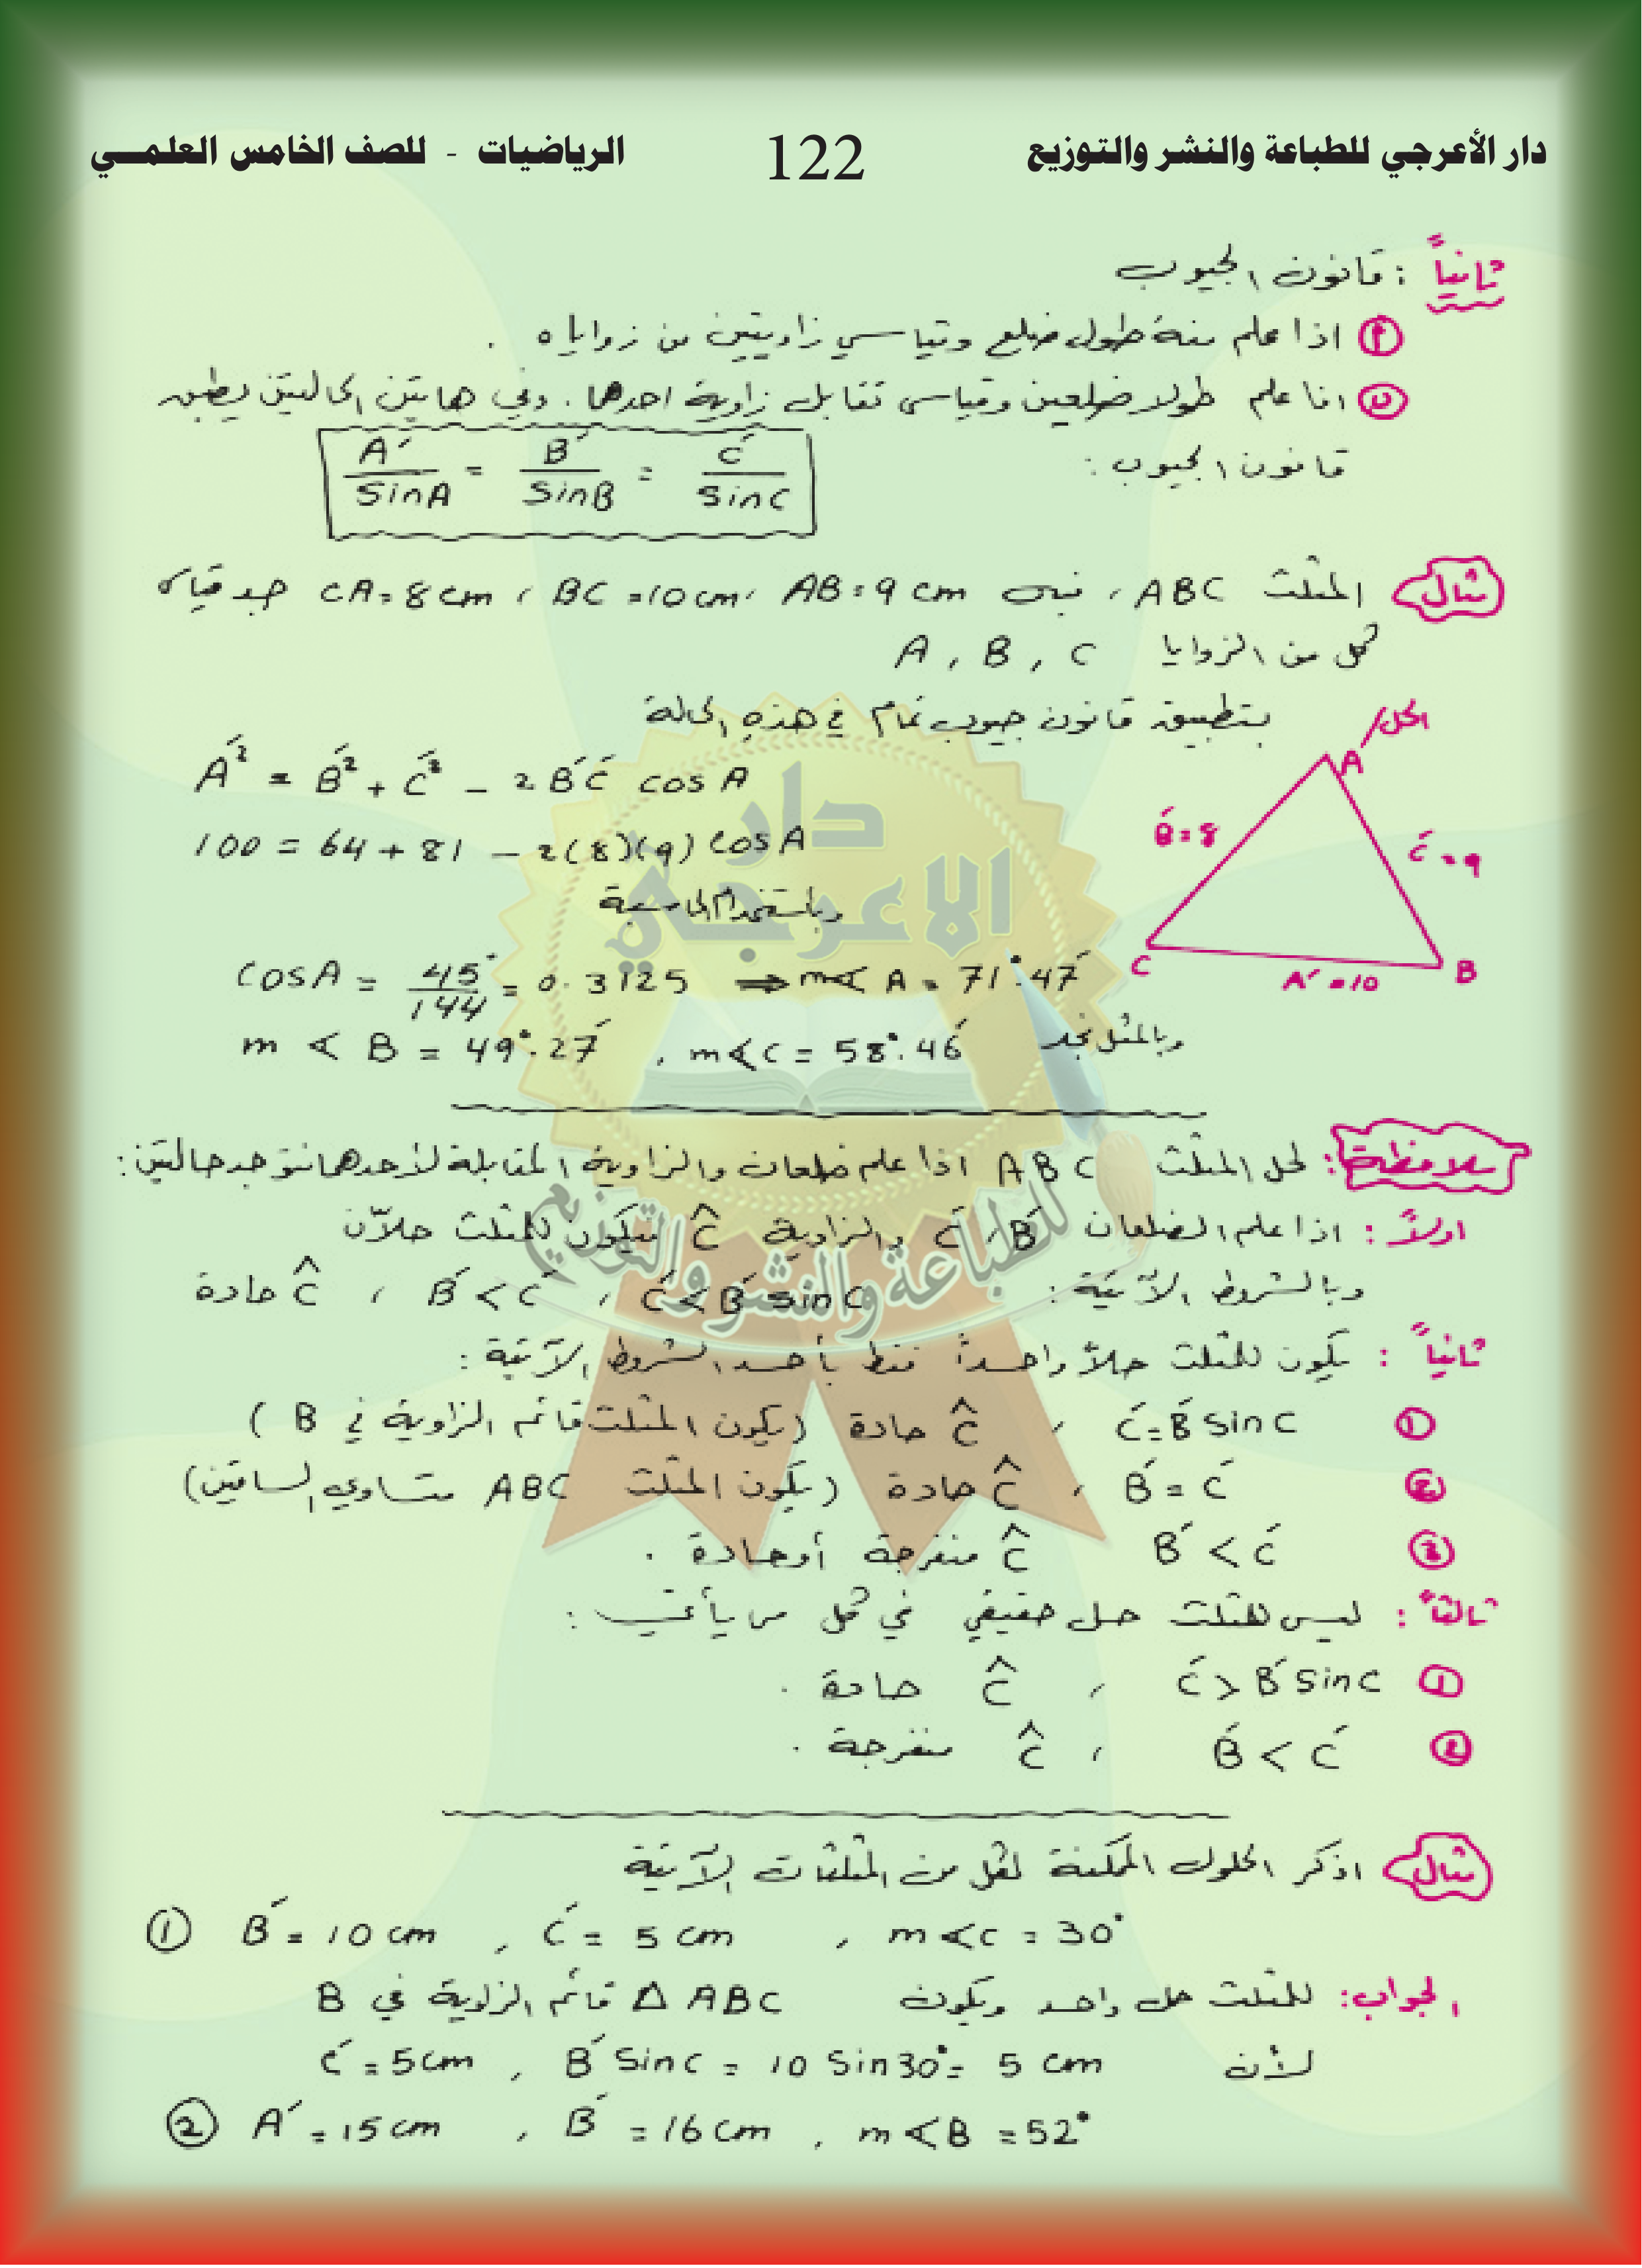 دار الأعرجي للطباعة والنشر والتوزيع 122 الرياضيات - للصف الخامس العلمـــي
ثانياً : قانون الجيوب
اذا علم منه طول ضلع وقياسي زاويتين من زواياه .
اذا علم طولا ضلعين وقياس تقابل زاوية احدها . وفي هاتين الحالتين يطبق
قانون الجيوب :
A´/sinA = B´/sinB = C´/sinC
مثال المثلث ABC ، فيه AB = 9 cm ، BC = 10 cm ، CA = 8 cm جد قياس
كل من الزوايا A , B , C
الحل/ بتطبيق قانون جيوب تمام في هذه الحالة
A´² = B´² + C´² - 2 B´C´ cos A
100 = 64 + 81 - 2(8)(9) cos A
A
B´ = 8
C´ = 9
C
A´ = 10
B
وباستخدام الحاسبة
cos A = 45/144 = 0.3125 ⇒ m∢A = 71°.47´
وبالمثل نجد m∢B = 49°.27´ , m∢C = 58°.46´
ملاحظة : لحل المثلث ABC اذا علم ضلعان والزاوية المقابلة لأحدهما توجد حالتين :
اولاً : اذا علم الضلعان B´ ، C´ والزاوية Ĉ فيكون للمثلث حلاّن
وبالشروط الآتية : C´ < B´ sin C ، B´ < C´ ، Ĉ حادة
ثانياً : يكون للمثلث حلاً واحداً فقط بأحد الشروط الآتية :
① C´ = B´ sin C ، Ĉ حادة (يكون المثلث قائم الزاوية في B )
② B´ = C´ ، Ĉ حادة (يكون المثلث ABC متساوي الساقين)
③ B´ < C´ Ĉ منفرجة أو حادة .
ثالثاً : ليس للمثلث حل حقيقي في كل مما يأتي :
① C´ > B´ sin C ، Ĉ حادة .
② B´ < C´ ، Ĉ منفرجة .
مثال اذكر الحلول الممكنة لكل من المثلثات الآتية
① B´ = 10 cm , C´ = 5 cm , m∢C = 30°
الجواب : للمثلث حل واحد ويكون Δ ABC قائم الزاوية في B
لأن C´ = 5 cm , B´ sin C = 10 sin 30° = 5 cm
② A´ = 15 cm , B´ = 16 cm , m∢B = 52°
دار
الاعرجي
للطباعة والنشر والتوزيع